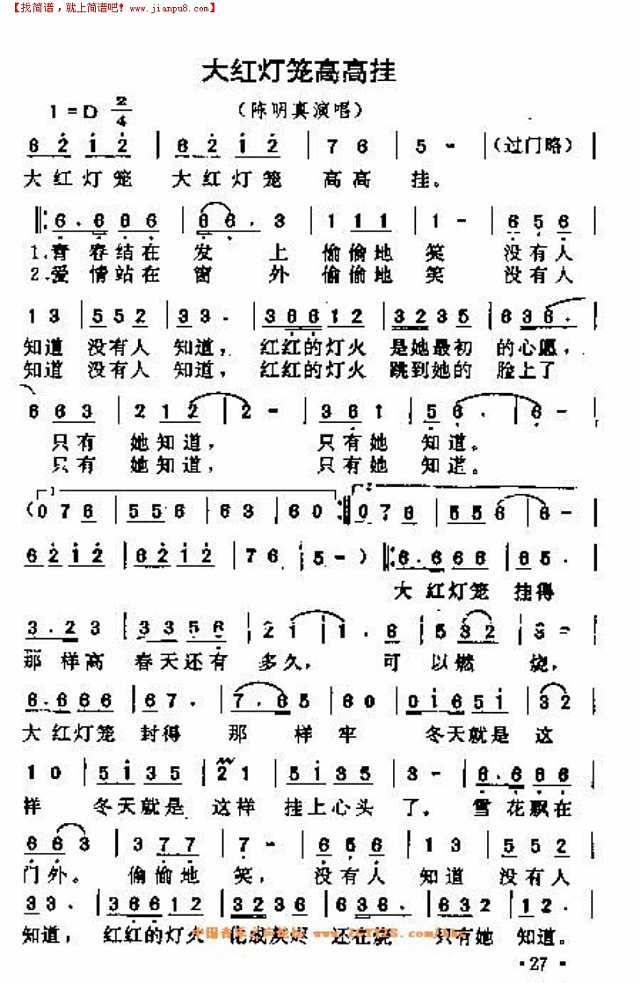 【找简谱，就上简谱吧！www.jianpu8.com】
大红灯笼高高挂
1=D 2/4
（陈明真演唱）
6 2 1 2 | 6 2 1 2 | 7 6 | 5 - |（过门略）|
大红灯笼 大红灯笼 高高 挂。
‖: 6. 6 6 6 | 6 6. 3 | 1 1 1 | 1 - | 6 5 6 |
1.青春结在 发 上 偷偷地 笑 没有人
2.爱情站在 窗 外 偷偷地 笑 没有人
1 3 | 5 5 2 | 3 3. | 3 6 6 1 2 | 3 2 3 5 | 6 3 6. |
知道 没有人 知道， 红红的灯火 是她最初 的心愿，
知道 没有人 知道， 红红的灯火 跳到她的 脸上了
6 6 3 | 2 1 2 | 2 - | 3 6 1 | 5 6. | 6 - |
只有 她知道， 只有她 知道。
只有 她知道， 只有她 知道。
1 2
(0 7 6 | 5 5 6 | 6 3 | 6 0 :‖ 0 7 6 | 5 5 6 | 6 - |
6 2 1 2 | 6 2 1 2 | 7 6 | 5 - ) ‖: 6. 6 6 6 | 6 5. |
大红灯笼 挂得
3. 2 3 | 3 3 5 6 | 2 1 | 1. 6 | 5 3 2 | 3 - |
那样高 春天还有 多久， 可 以燃 烧，
6. 6 6 6 | 6 7. | 7. 6 5 | 6 0 | 0 1 6 5 1 | 3 2 |
大红灯笼 封得 那 样牢 冬天就是 这
1 0 | 5 1 3 5 | 2 1 | 5 1 3 5 | 3 - | 6. 6 6 6 |
样 冬天就是 这样 挂上心头 了， 雪花飘在
6 6 3 | 3 7 7 | 7 - | 6 5 6 | 1 3 | 5 5 2 |
门外。 偷偷地 笑， 没有人 知道 没有人
3 3. | 3 6 6 1 2 | 3 2 3 5 | 6 3 6. | 6 3 2 | 1 2. |
知道， 红红的灯火 化成灰烬 还在烧 只有她 知道。
· 27 ·